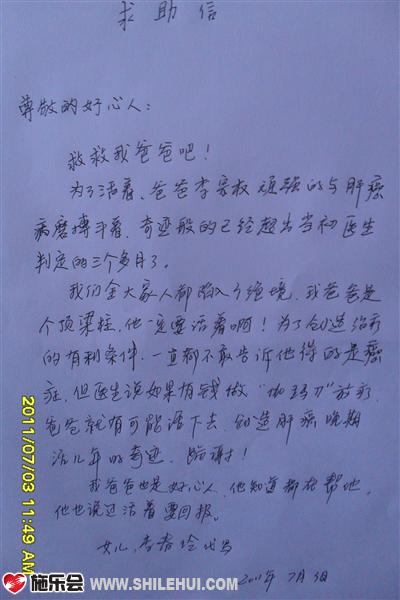 求助信
尊敬的好心人：
救救我爸爸吧！
为了活着、爸爸李家权顽强的与肝癌
病磨搏斗着、奇迹般的已经超出当初医生
判定的三个多月了。
我们全大家人都陷入了绝境、我爸爸是
个顶梁柱、他一定要活着啊！为了创造治疗
的有利条件、一直都不敢告诉他得的是癌
症、但医生说如果有钱做“伽玛刀”治疗、
爸爸就有可能活下去、创造肝癌晚期
活几年的奇迹、跪谢！
我爸爸也是好心人、他知道都在帮他、
他也说过活着要回报。
女儿、李春
2011年7月3日
2011/07/03 11:49 AM
施乐会 WWW.SHILEHUI.COM